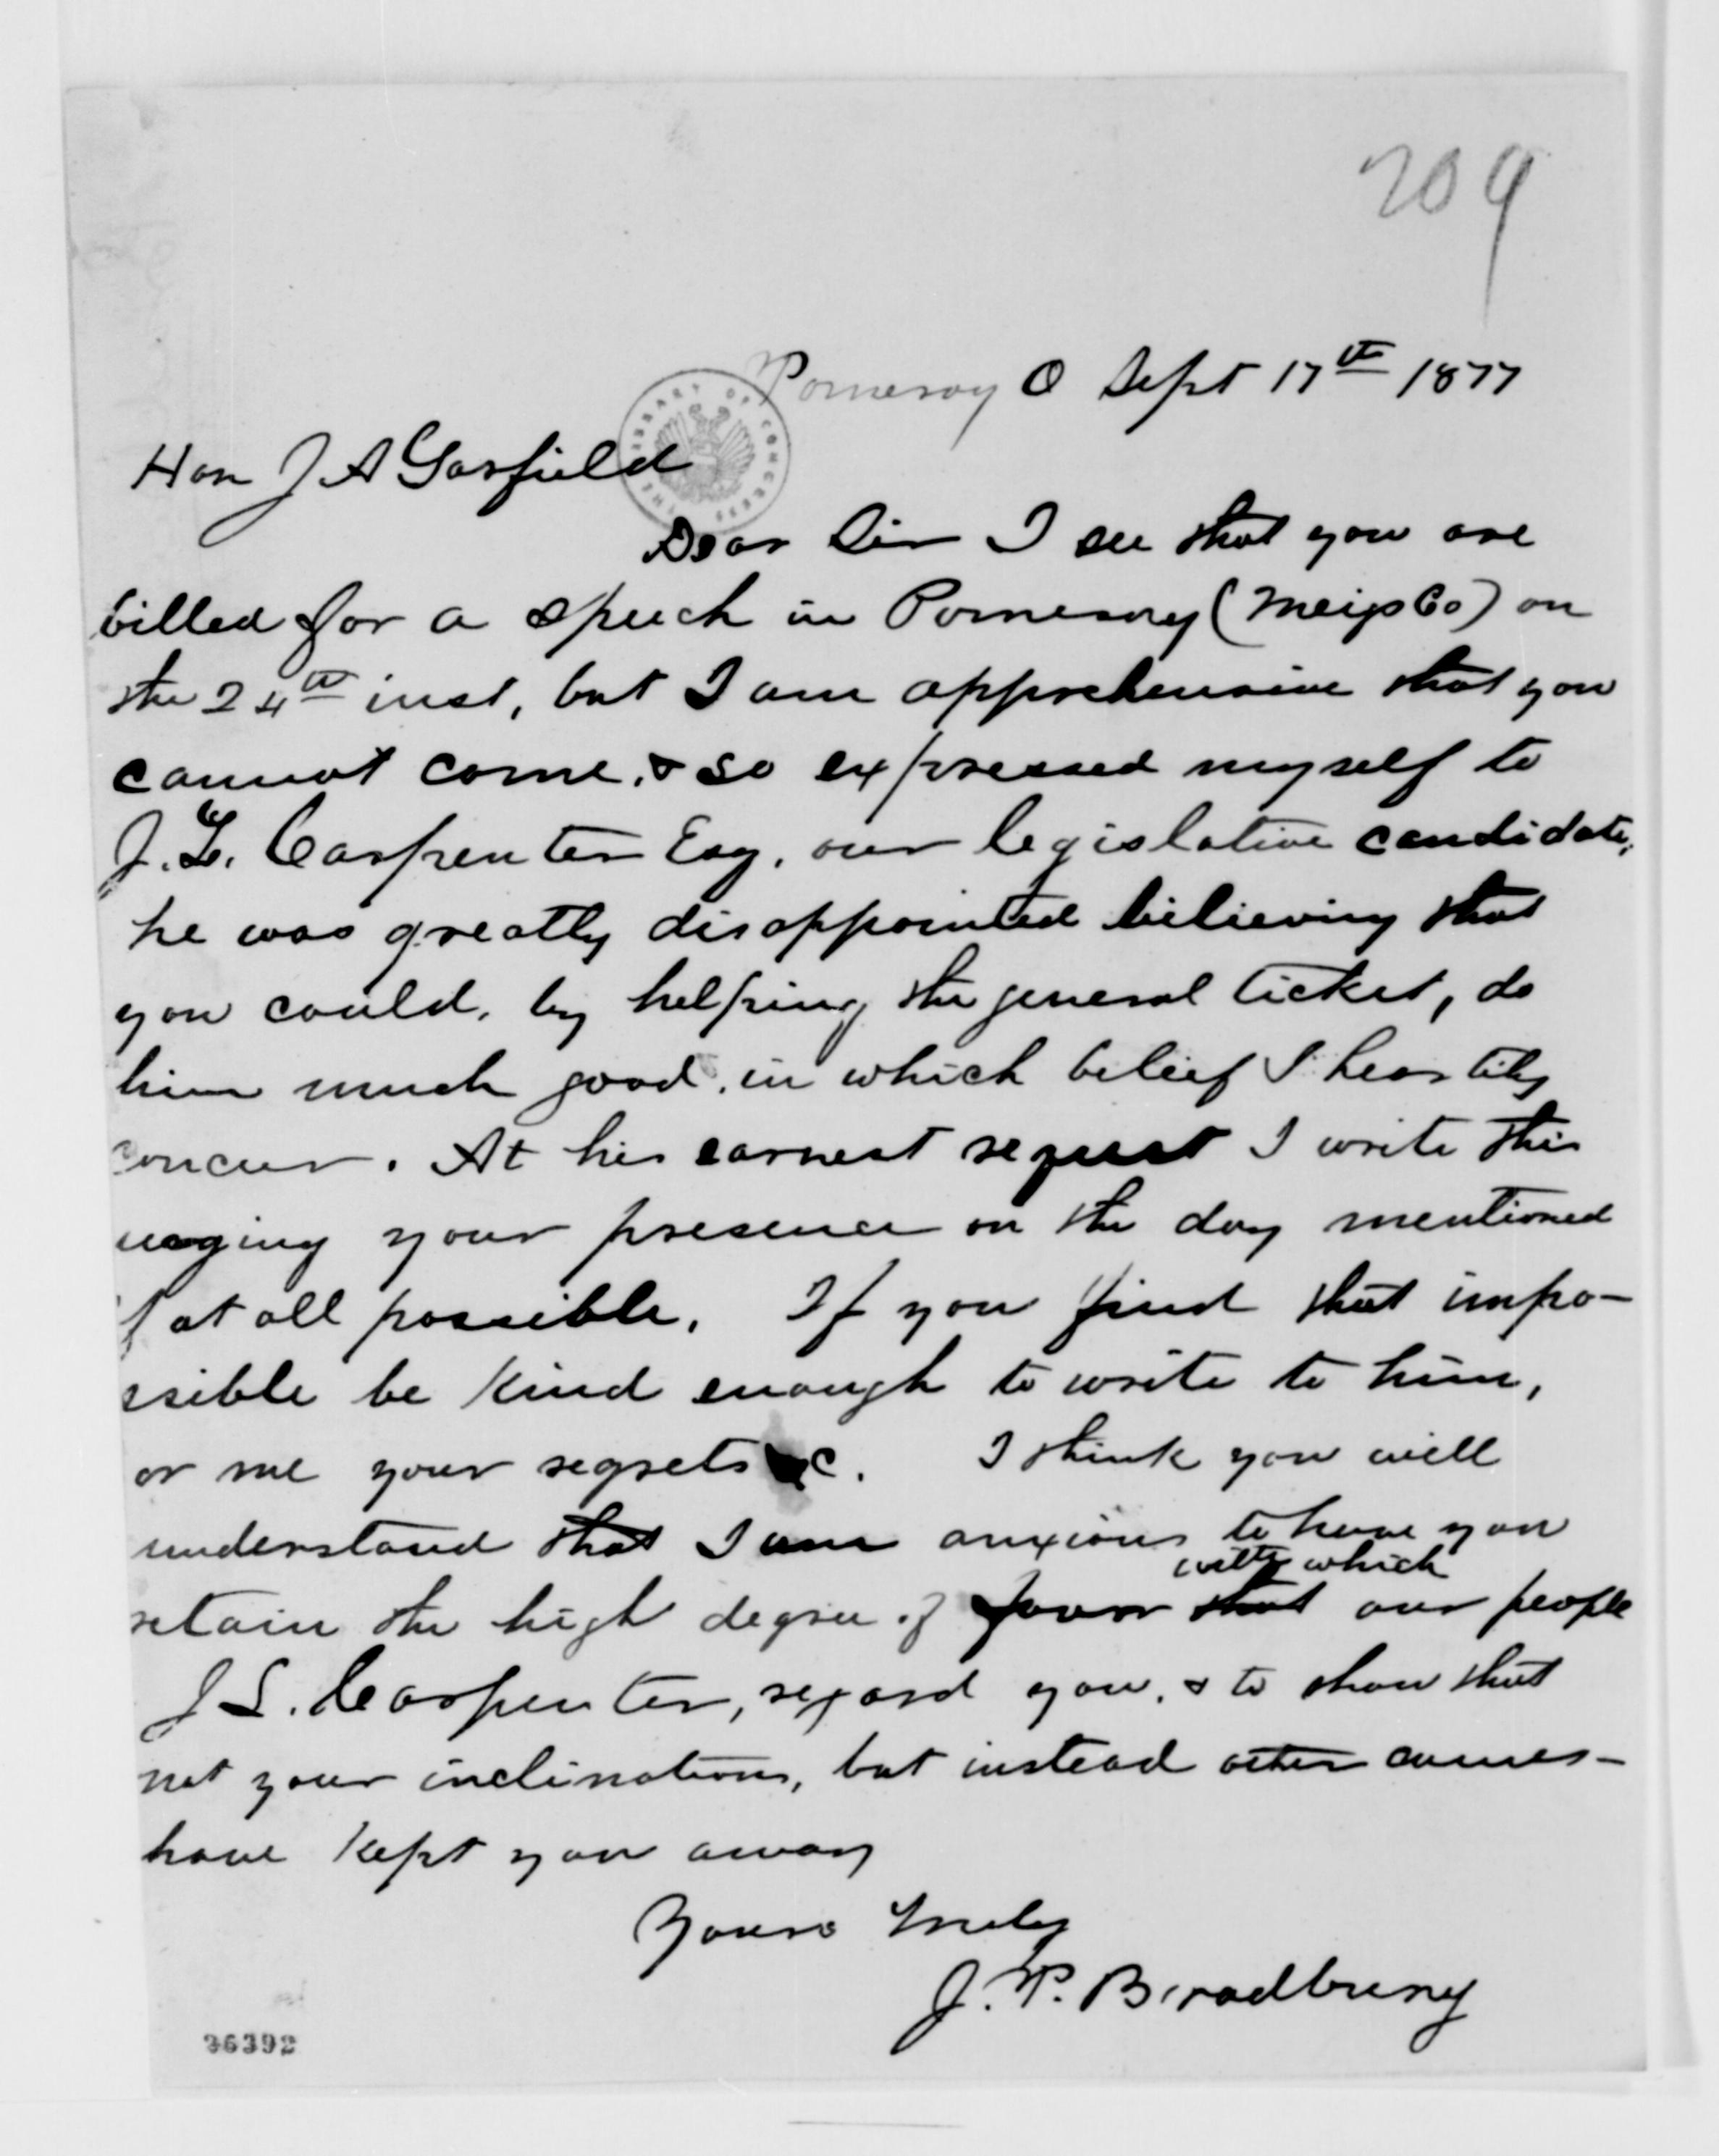 209
Pomeroy O Sept 17th 1877
THE LIBRARY OF CONGRESS
Hon J A Garfield
Dear Sir I see that you are
billed for a speech in Pomeroy (Meigs Co) on
the 24th inst, but I am apprehensive that you
cannot come, & so expressed myself to
J. L. Carpenter Esq, our legislative candidate,
he was greatly disappointed believing that
you could, by helping the general ticket, do
him much good, in which belief I heartily
concur. At his earnest request I write this
urging your presence on the day mentioned
if at all possible. If you find that impo-
ssible be kind enough to write to him,
or me your regrets &c. I think you will
understand that I am anxious to have you
with which
retain the high degree of favor that our people
J L. Carpenter, regard you, & to show that
not your inclinations, but instead other causes-
have kept you away
Yours truly
J. P. Bradbury
36392